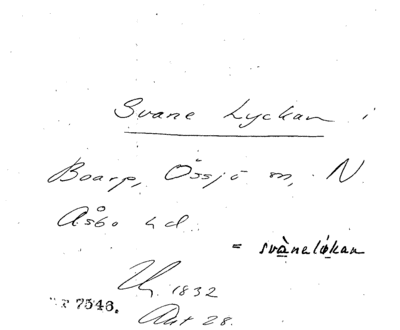 Svane Lyckan i
Boarp, Össjö sn, N
Åsbo hd.
= svànelýkan
1832
7546.
Akt 28.